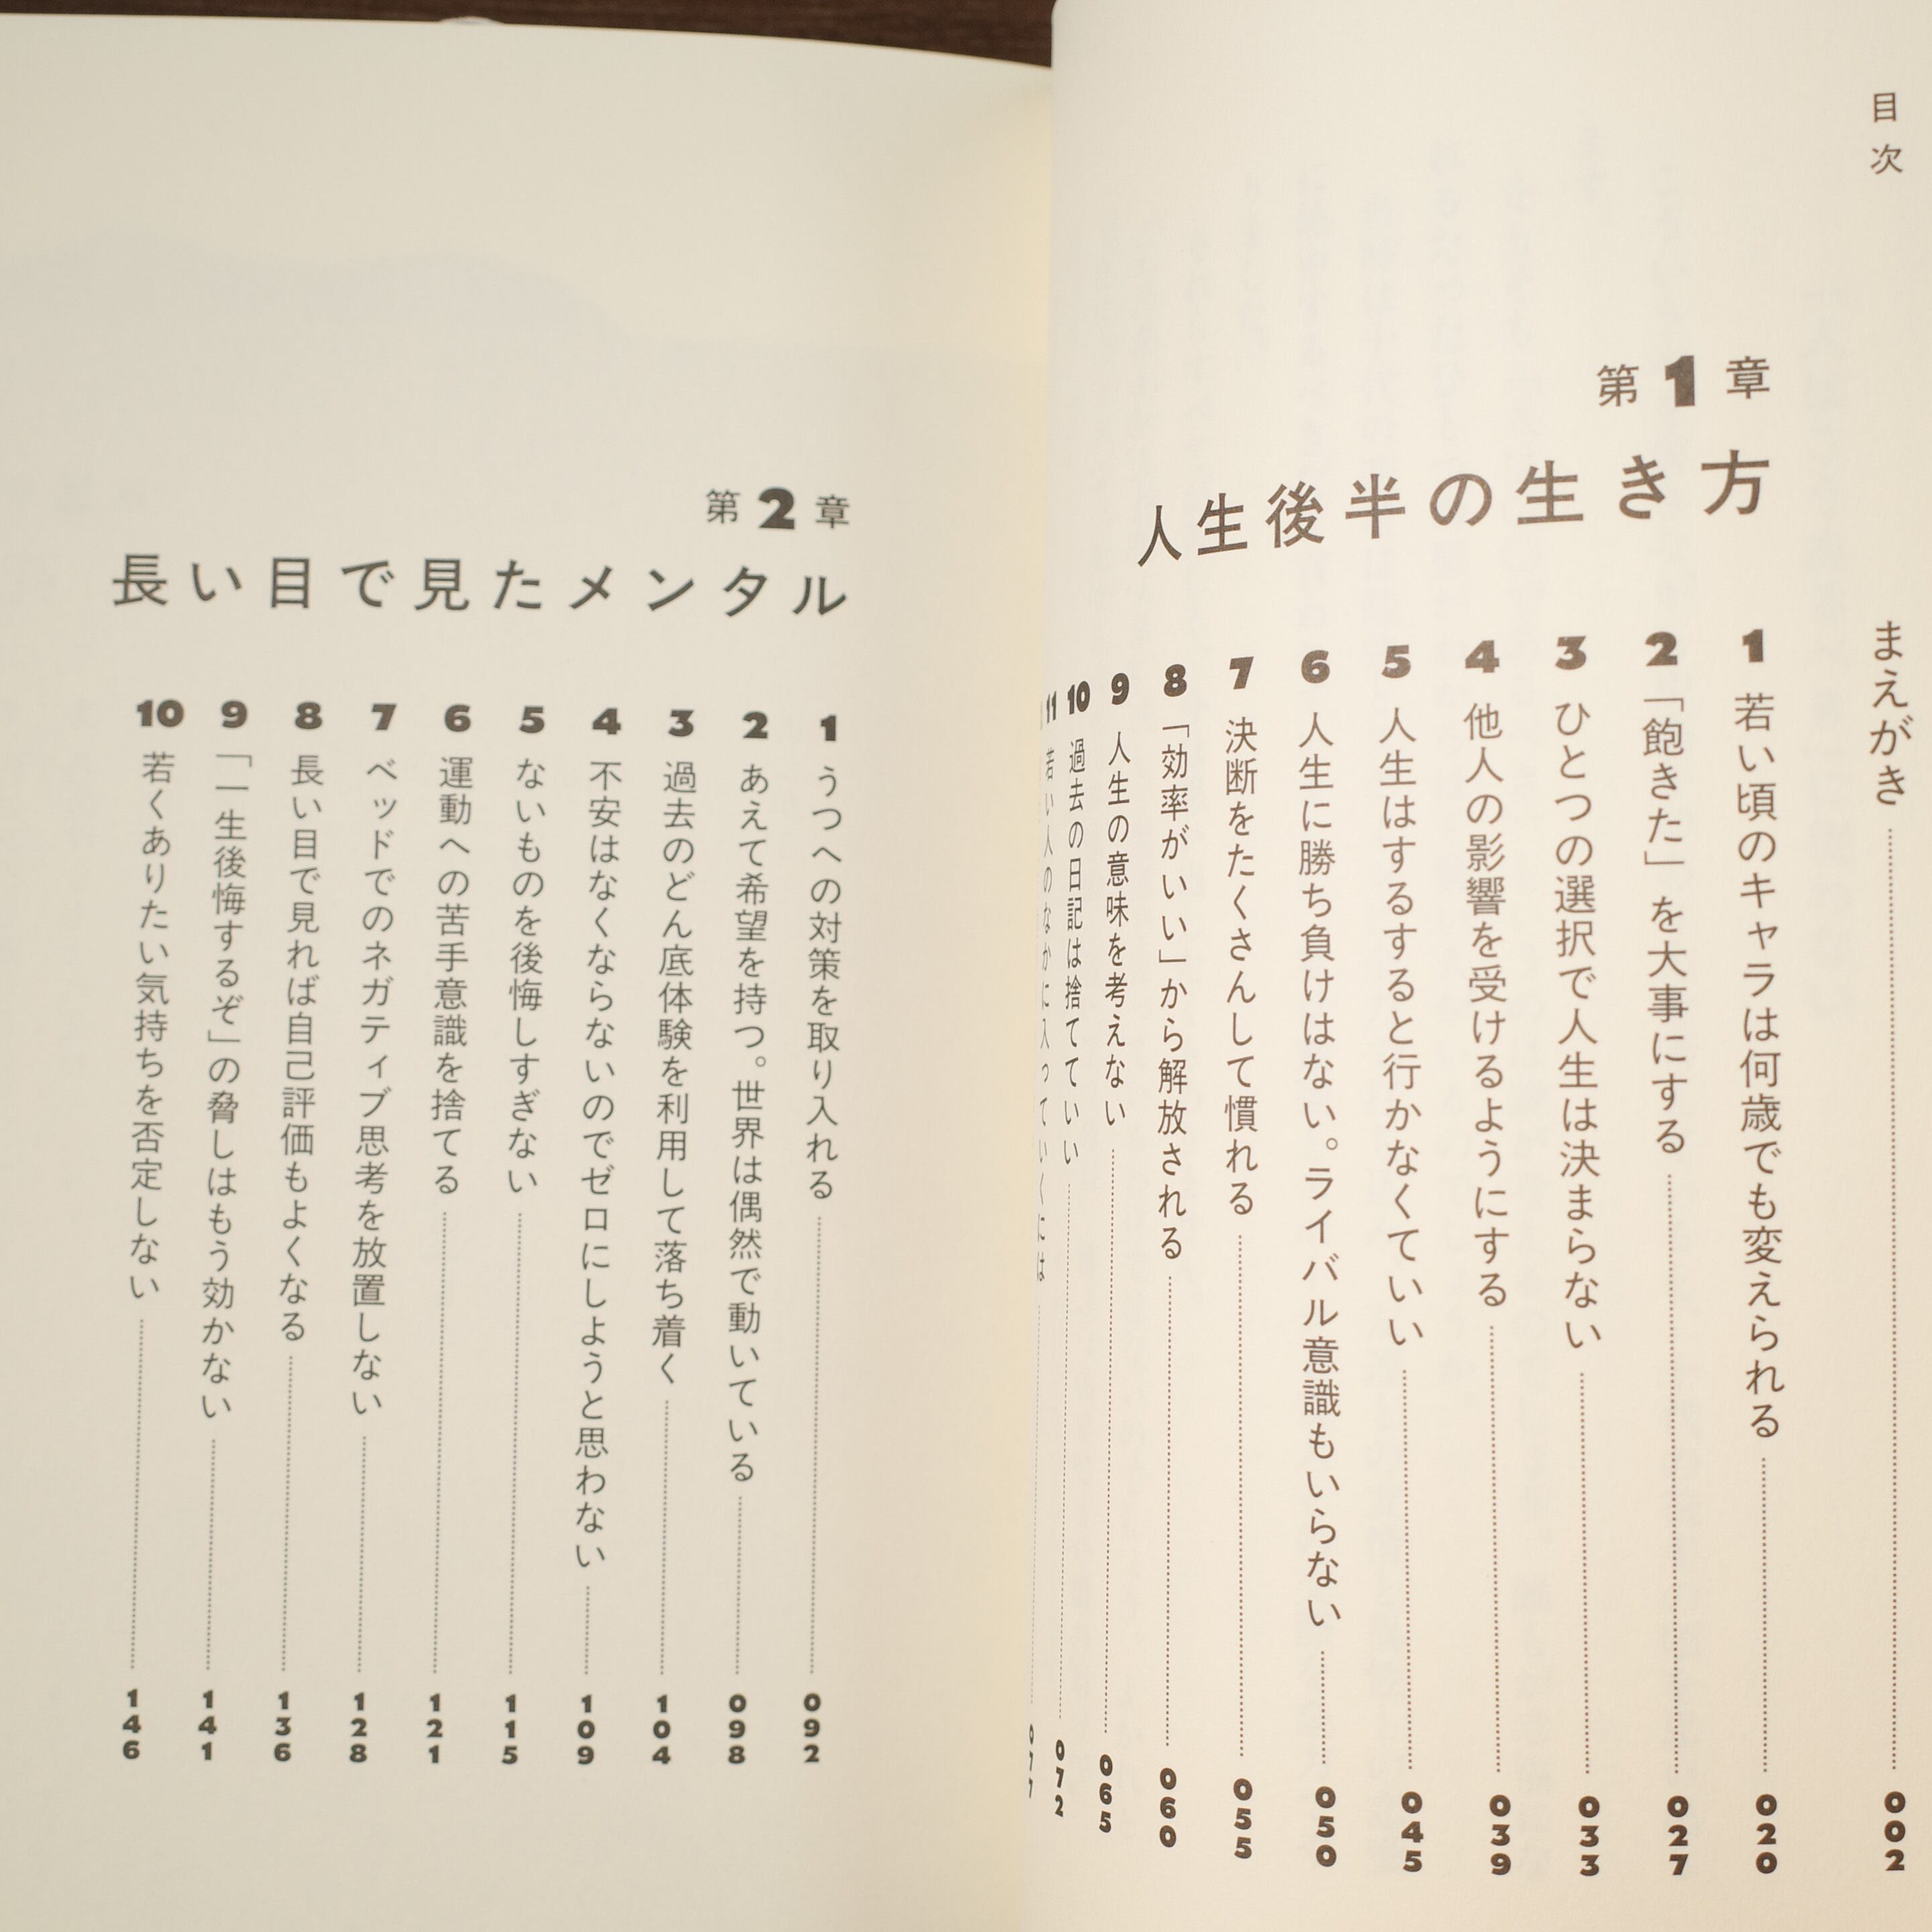 目次
まえがき 002
第1章
人生後半の生き方
1 若い頃のキャラは何歳でも変えられる 020
2 「飽きた」を大事にする 027
3 ひとつの選択で人生は決まらない 033
4 他人の影響を受けるようにする 039
5 人生はするすると行かなくていい 045
6 人生に勝ち負けはない。ライバル意識もいらない 050
7 決断をたくさんして慣れる 055
8 「効率がいい」から解放される 060
9 人生の意味を考えない 065
10 過去の日記は捨てていい 072
11 若い人のなかに入っていくには 077
第2章
長い目で見たメンタル
1 うつへの対策を取り入れる 092
2 あえて希望を持つ。世界は偶然で動いている 098
3 過去のどん底体験を利用して落ち着く 104
4 不安はなくならないのでゼロにしようと思わない 109
5 ないものを後悔しすぎない 115
6 運動への苦手意識を捨てる 121
7 ベッドでのネガティブ思考を放置しない 128
8 長い目で見れば自己評価もよくなる 136
9 「一生後悔するぞ」の脅しはもう効かない 141
10 若くありたい気持ちを否定しない 146